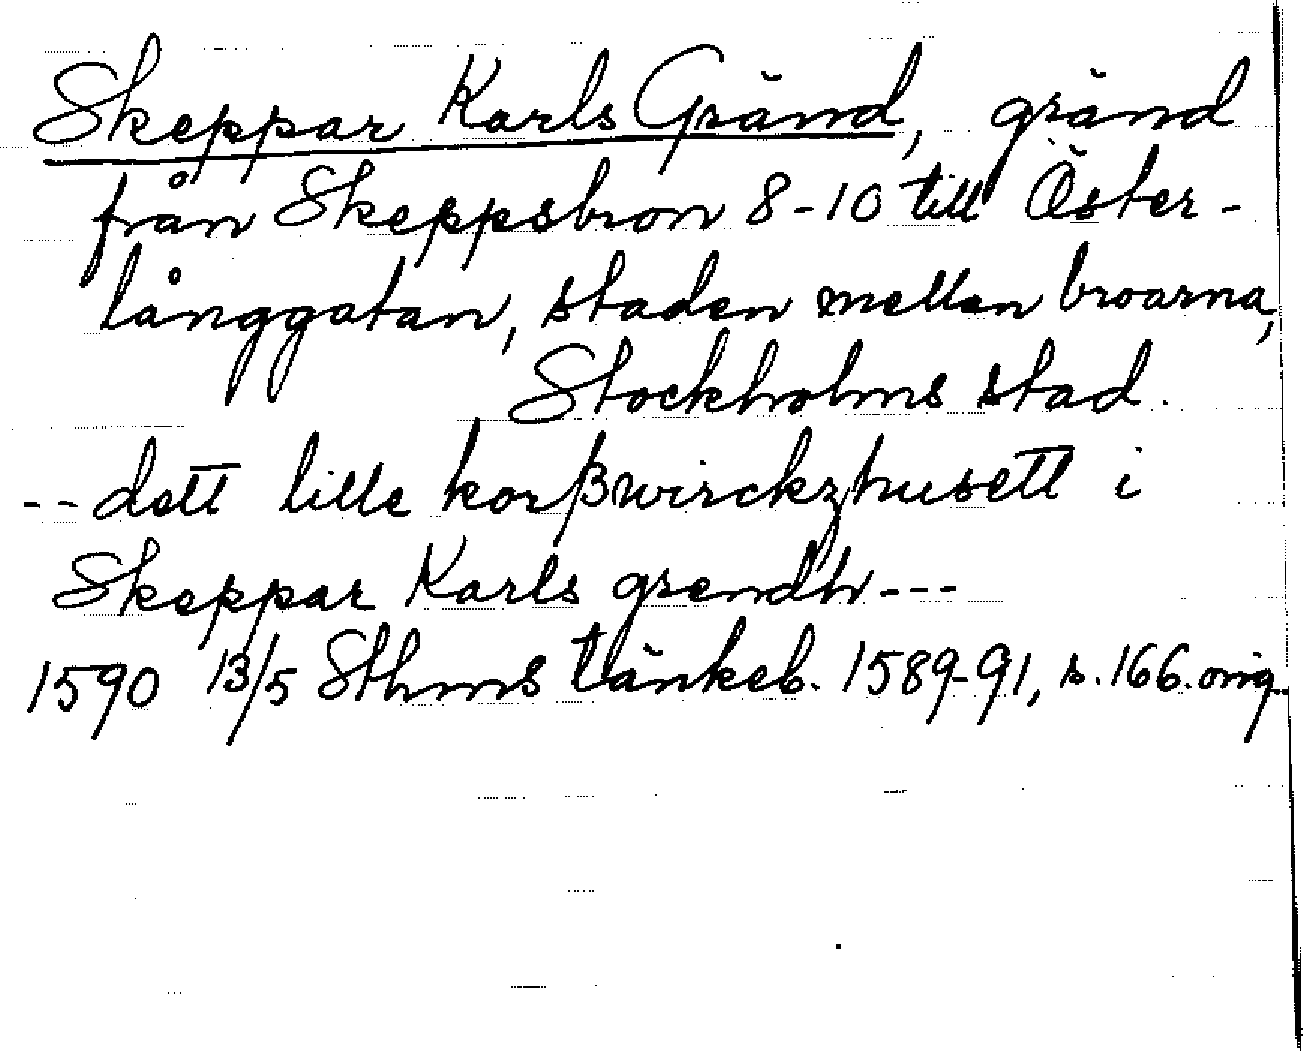 Skeppar Karls Gränd, gränd
från Skeppsbron 8-10 till Öster-
långgatan, staden mellan broarna,
Stockholms stad.
-- dett lille korßwirckzhusett i
Skeppar Karls grendh---
1590 13/5 Sthms tänkeb. 1589-91, s. 166. orig.